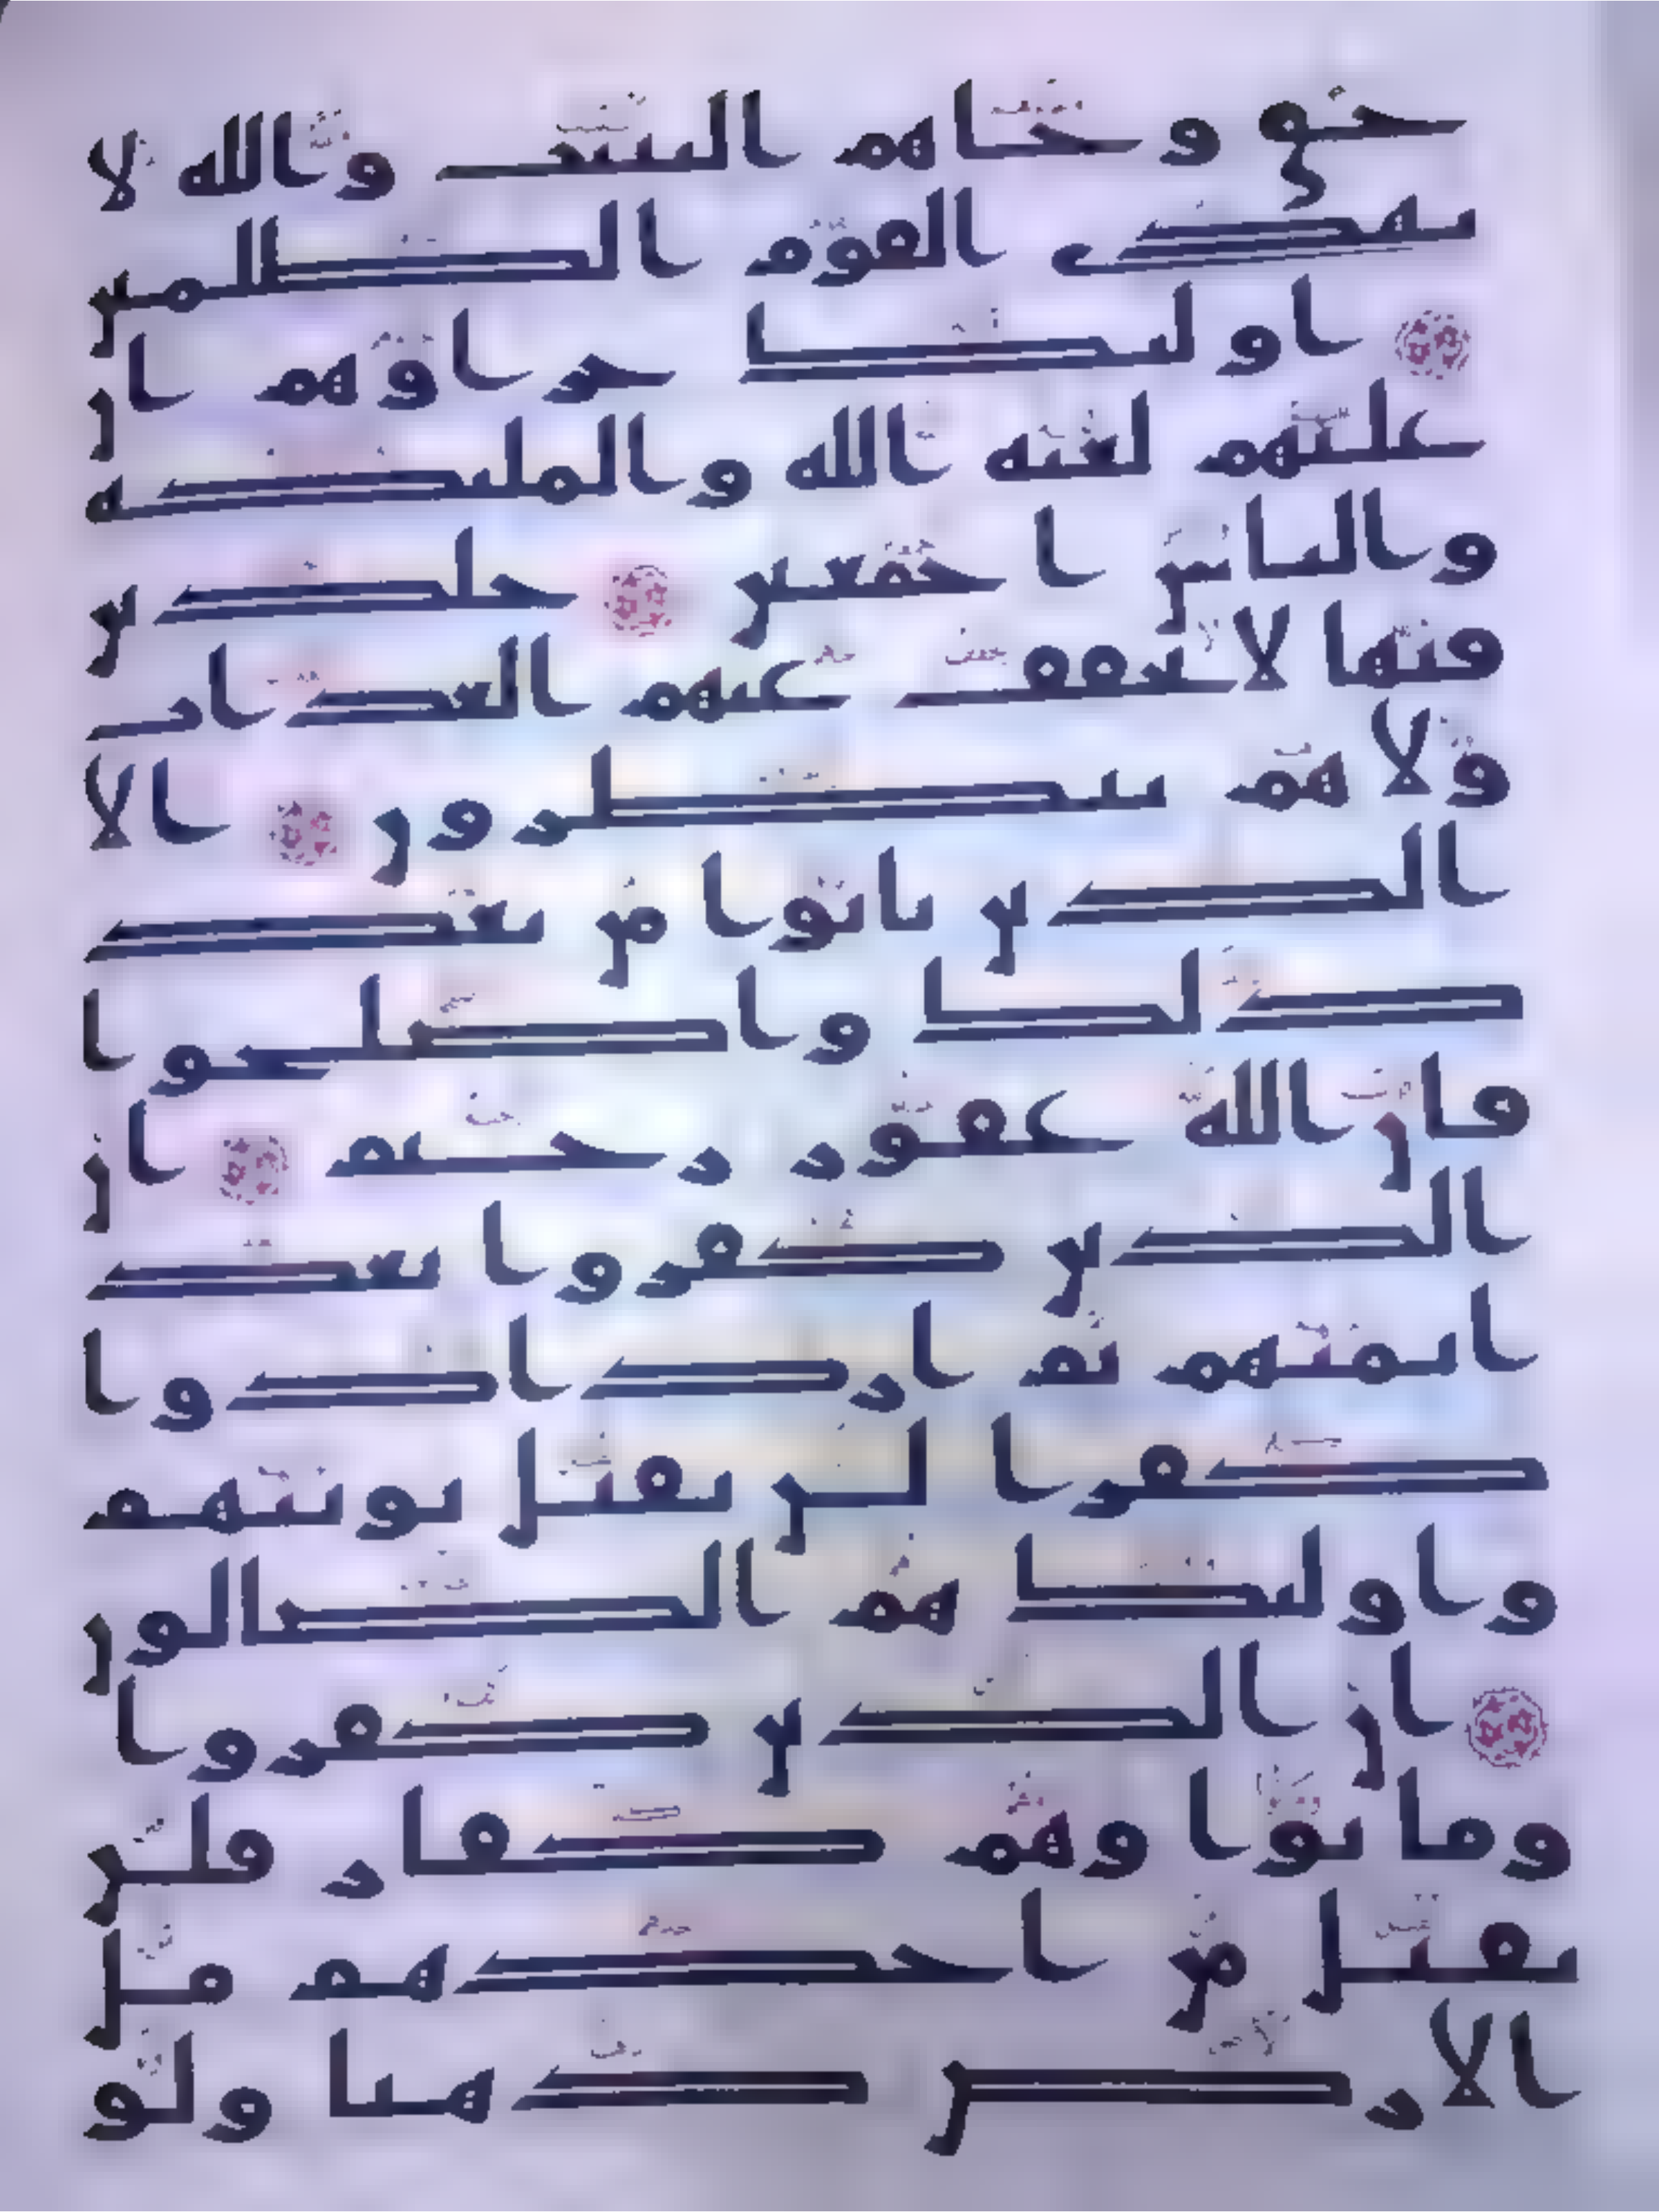 حق وجاهم البينت والله لا
يهدي القوم الظلمين
اولئك جزاوهم ان
عليهم لعنه الله والملئكه
والناس اجمعين خلدين
فيها لا يخفف عنهم العذاب
ولا هم ينظرون الا
الذين تابوا من بعد
ذلك واصلحوا
فان الله غفور رحيم ان
الذين كفروا بعد
ايمنهم ثم ازدادوا
كفرا لن تقبل توبتهم
واولئك هم الضالون
ان الذين كفروا
وماتوا وهم كفار فلن
يقبل من احدهم مل
الارض ذهبا ولو